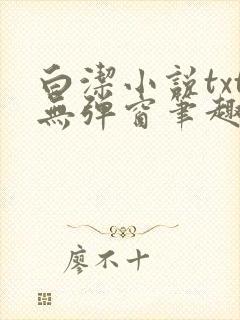 白潔小説txt
無彈窗筆趣
廖不十